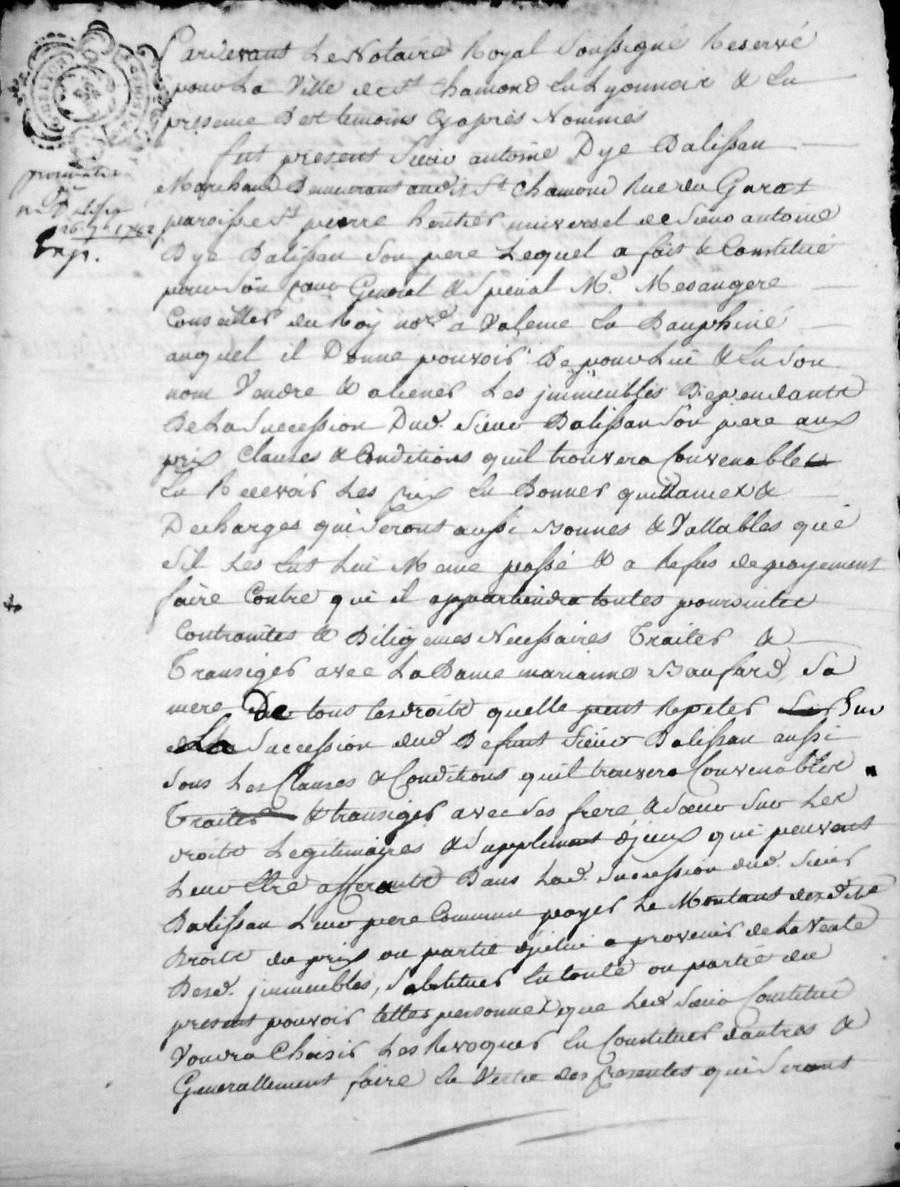 Pardevant Le Notaire Royal Soussigné Reservé
pour La Ville de St Chamond En Lyonnois & En
presence Des temoins Cyaprés Nommés
fut present Sieur antoine Dye Dalissan
Marchand Demeurant audit St Chamond Rue du Garat
paroisse St pierre heritier universel de Sieur antoine
Dye Dalissan Son pere Lequel a fait & Constitué
pour Son proc General & Special Me Mesangere
Conseiller du Roy nore a Valence En Dauphiné
auquel il Donne pouvoir De pour Lui & En Son
nom Vendre & aliener Les jmmeubles Dependants
De La Succession Dud. Sieur Dalissan Son pere aux
prix Clauses & Conditions quil trouvera Convenables
En Recevoir Les prix En Donner quittances &
Decharges qui Seront aussi Bonnes & Vallables que
Sil Les Eut Lui Meme passé & a Refus de payement
faire Contre qui il appartiendra toutes poursuites
Contraintes & Diligences Necessaires Traiter &
Transiger avec La Dame marianne Sa
mere De tous les droits quelle peut Repeter Sur
La Succession dud Defunt Sieur Dalissan aussi
Sous Les Clauses & Conditions quil trouvera Convenables
Traiter & transiger avec Ses frere & Sœur Sur Les
droits Legitimaires & Supplement djceux qui peuvent
Leur Etre afferants Dans Lad. Succession dud. Sieur
Dalissan Leur pere Commun payer Le Montant desdits
Droits du prix ou partie djcelui a provenir de La Vente
Desd. jmmeubles, Substituer En toute ou partie du
present pouvoir telles personnes que Led Sieur Constitué
Voudra Choisir Les Revoquer En Constituer dautres &
Generallement faire En Vertu des presentes qui Seront
procuration
26 1782
Exp.